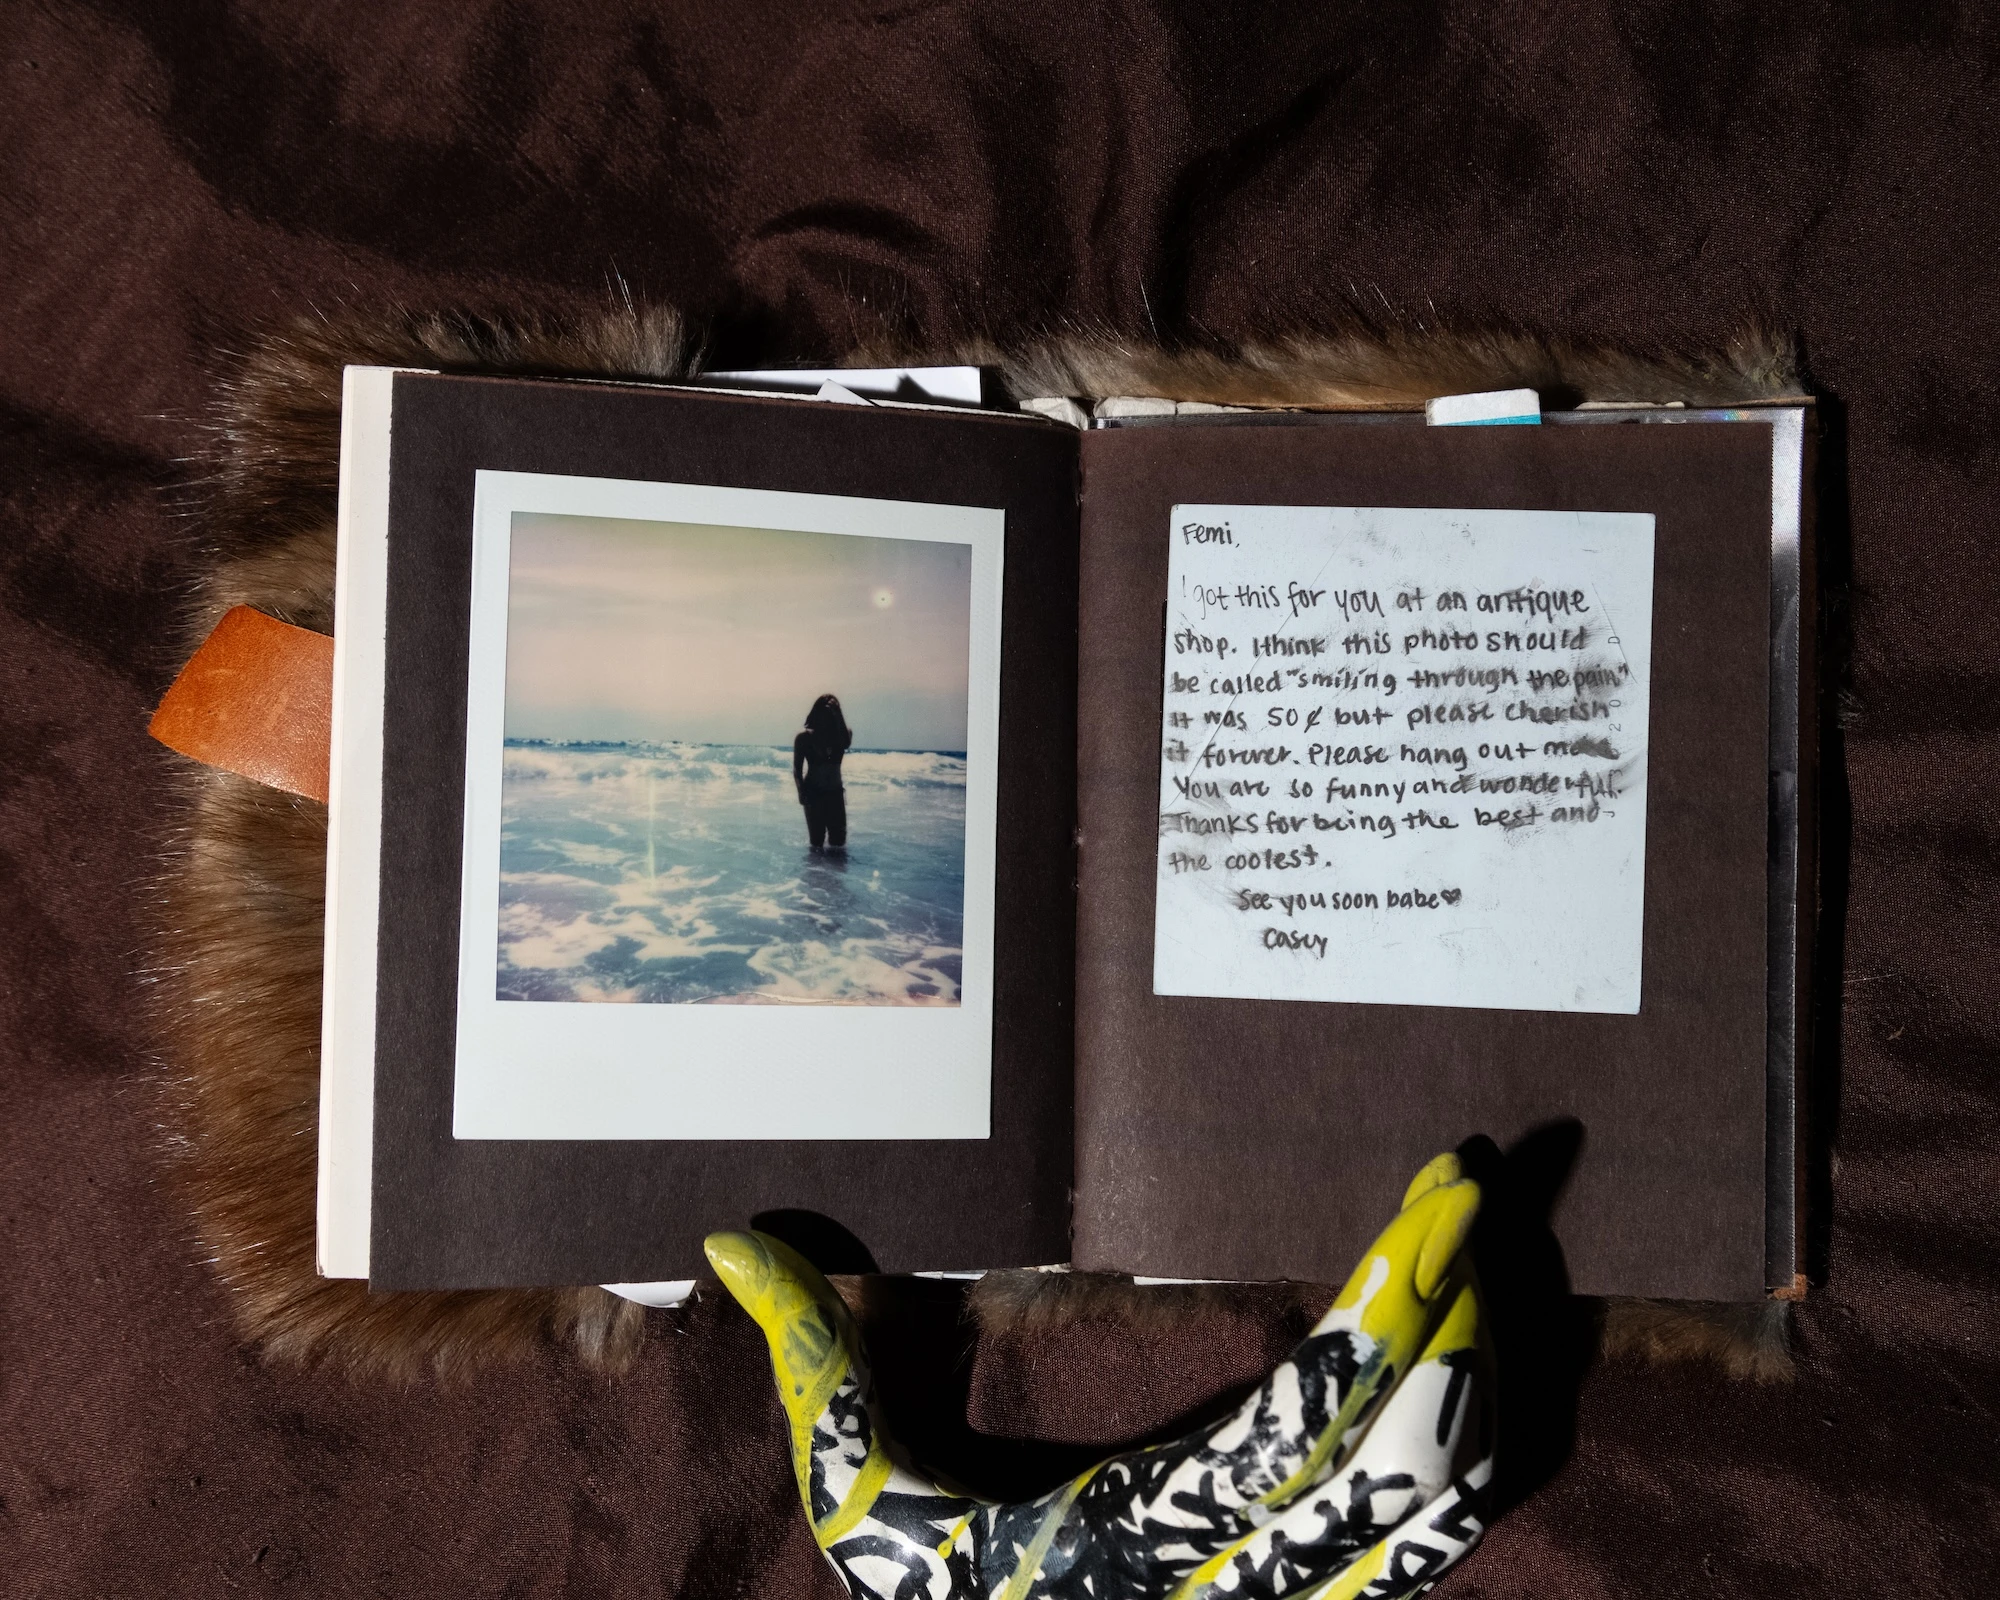 Femi,
I got this for you at an antique
shop. I think this photo should
be called "smiling through the pain"
it was 50¢ but please cherish
it forever. Please hang out more
You are so funny and wonderful.
Thanks for being the best and
the coolest.
See you soon babe♡
Casey